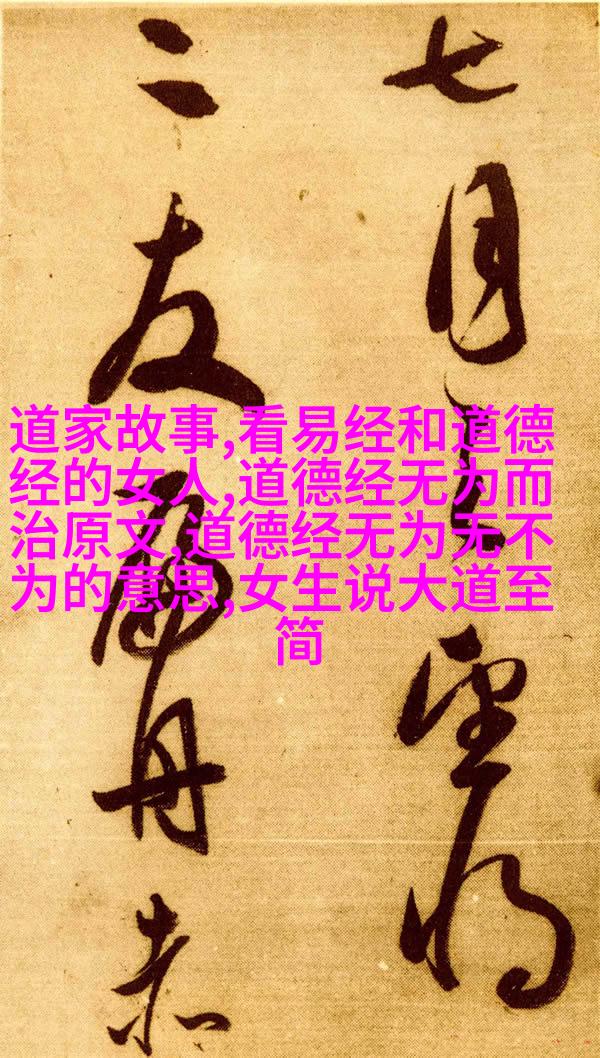 七月之望将
二友扁舟赤
道家故事,看易经和道德
经的女人,道德经无为而
治原文,道德经无为无不
为的意思,女生说大道至
简